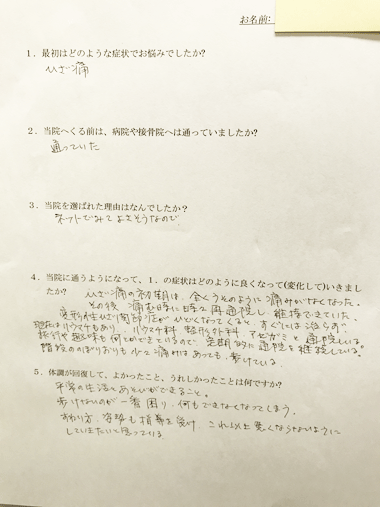 お名前:
1．最初はどのような症状でお悩みでしたか?
ひざ痛
2．当院へくる前は、病院や接骨院へは通っていましたか?
通っていた
3．当院を選ばれた理由はなんでしたか?
ネットでみてよさそうなので
4．当院に通うようになって、1．の症状はどのように良くなって(変化して)いきましたか?
ひざ痛の初期は、全くうそのように痛みがなくなった。
その後、痛む時に時々再通院し維持できていた。
変形性ひざ関節症がひどくなってくると、すぐには治らず、
現在はリウマチもあり、リウマチ科、整形外科、アセガミと通院している
旅行や趣味も何とかできているので、定期的に通院を継続している。
階段ののぼりおりも少々痛みはあっても、歩けている。
5．体調が回復して、よかったこと、うれしかったことは何ですか?
平常の生活とあそびができること。
歩けないのが一番困り、何もできなくなってしまう。
すわり方、姿勢も指導を受け、これ以上悪くならないように
していきたいと思っている